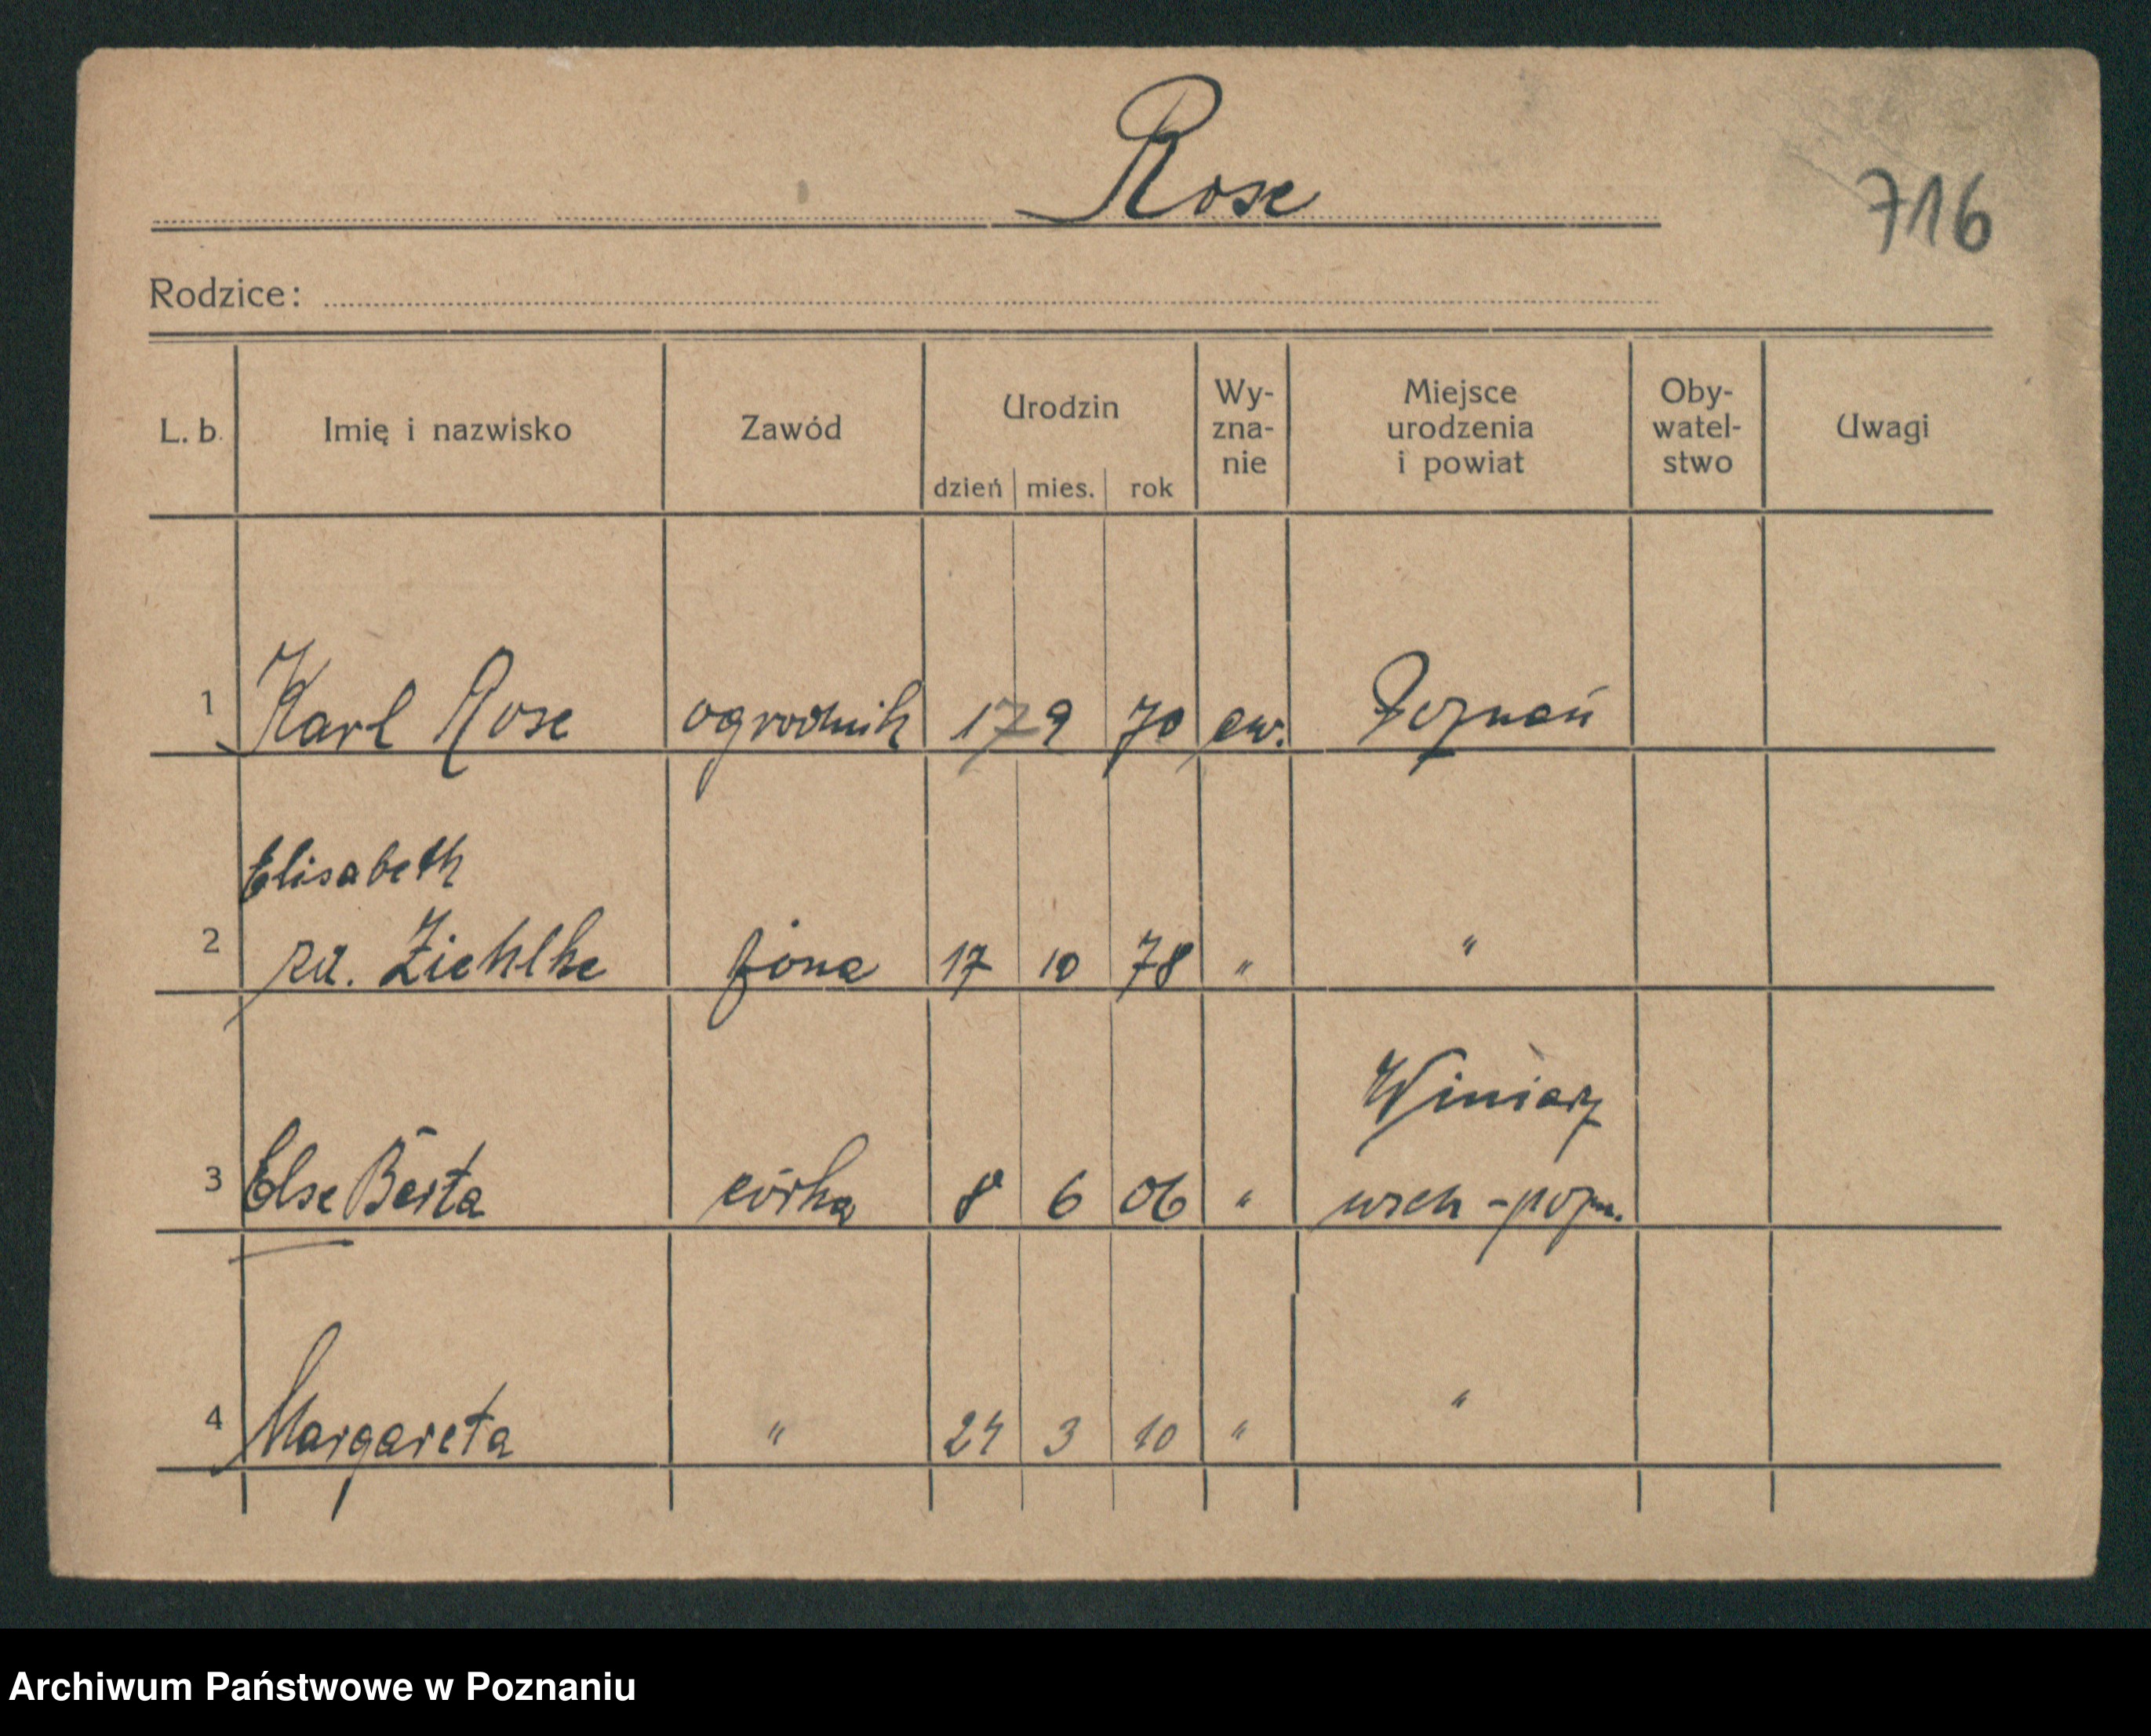 Rose
716
Rodzice:
L. b. Imię i nazwisko Zawód Urodzin dzień mies. rok Wy-zna-nie Miejsce urodzenia i powiat Oby-watel-stwo Uwagi
1 Karl Rose ogrodnik 17 9 70 ew. Poznań
Elisabeth
2 Ziehlke żona 17 10 78 " "
Winiary
3 Else Berta córka 8 6 06 " wsch-pozn.
4 Margareta " 24 3 10 " "
Archiwum Państwowe w Poznaniu